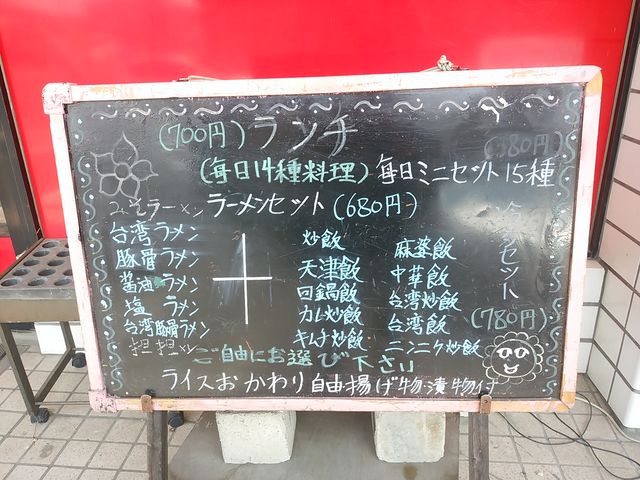 (700円) ランチ
(380円)
(毎日14種料理) 毎日ミニセット15種
みそラーメン ラーメンセット (680円)
台湾ラメン
豚骨ラメン
醤油ラメン
塩 ラメン
台湾豚骨ラメン
担担メン
+
炒飯
天津飯
回鍋飯
カレ炒飯
キムチ炒飯
麻婆飯
中華飯
台湾炒飯
台湾飯
ニンニク炒飯
セット
(780円)
ご自由にお選び下さい
ライスおかわり自由揚げ物漬物付